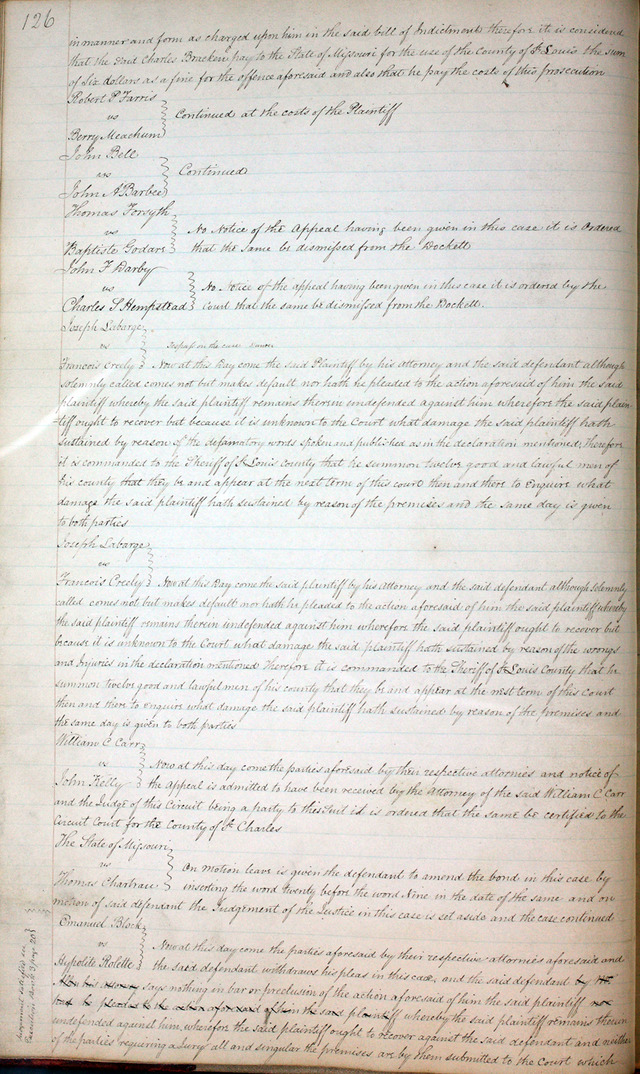 126
in manner and form as charged upon him in the said bill of Indictment therefore it is considered
that the said Charles Bracken pay to the State of Missouri for the use of the County of St Louis the sum
of Six dollars as a fine for the offence aforesaid and also that he pay the costs of this prosecution
Robert P Farris
vs
Continued at the costs of the Plaintiff
Berry Meachum
John Bell
vs
Continued
John A Barbee
Thomas Forsyth
vs
No Notice of the Appeal having been given in this case it is Ordered
Baptiste Godare that the same be dismissed from the Dockett
John F Darby
vs
No Notice of the appeal having been given in this case it is ordered by the
Charles S Hempstead Court that the same be dismissed from the Dockett.
Joseph Labarge
vs Trespass on the case
Francois Creely Now at this Day come the said Plaintiff by his attorney and the said defendant although
solemnly called comes not but makes default nor hath he pleaded to the action aforesaid of him the said
plaintiff whereby the said plaintiff remains therein undefended against him wherefore the said plain
tiff ought to recover but because it is unknown to the Court what damage the said plaintiff hath
sustained by reason of the defamatory words spoken and published as in the declaration mentioned, Therefore
it is commanded to the Sheriff of St Louis County that he summon twelve good and lawful men of
his county that they be and appear at the next term of this court then and there to Enquire what
damage the said plaintiff hath sustained by reason of the premises and the same day is given
to both parties
Joseph Labarge
vs
Francois Creely Now at this Day come the said plaintiff by his Attorney and the said defendant although solemnly
called comes not but makes default nor hath he pleaded to the action aforesaid of him the said plaintiff whereby
the said plaintiff remains therein undefended against him wherefore the said plaintiff ought to recover but
because it is unknown to the Court what damage the said plaintiff hath sustained by reason of the wrongs
and Injuries in the declaration mentioned Therefore it is commanded to the Sheriff of St Louis County that he
summon twelve good and lawful men of his county that they be and appear at the next term of this Court
then and there to enquire what damage the said plaintiff hath sustained by reason of the premises and
the same day is given to both parties
William C Carr
vs
Now at this day come the parties aforesaid by their respective attornies and notice of
John Kelly the Appeal is admitted to have been received by the Attorney of the said William C Carr
and the Judge of this Circuit being a party to this Suit it is ordered that the same be certified to the
Circuit Court for the County of St Charles
The State of Missouri
vs
On motion leave is given the defendant to amend the bond in this case by
Thomas Chartrau inserting the word twenty before the word Nine in the date of the same and on
motion of said defendant the Judgement of the Justice in this case is set aside and the case continued
Emanuel Block
vs
Now at this day come the parties aforesaid by their respective attornies aforesaid and
Hypolite Rolette the said defendant withdraws his pleas in this case, and the said defendant
says nothing in bar or preclusion of the action aforesaid of him the said plaintiff
he pleaded to the action aforesaid of him the said plaintiff whereby the said plaintiff remains therein
undefended against him, wherefore the said plaintiff ought to recover against the said defendant and neither
of the parties requiring a Jury all and singular the premises are by them submitted to the Court which